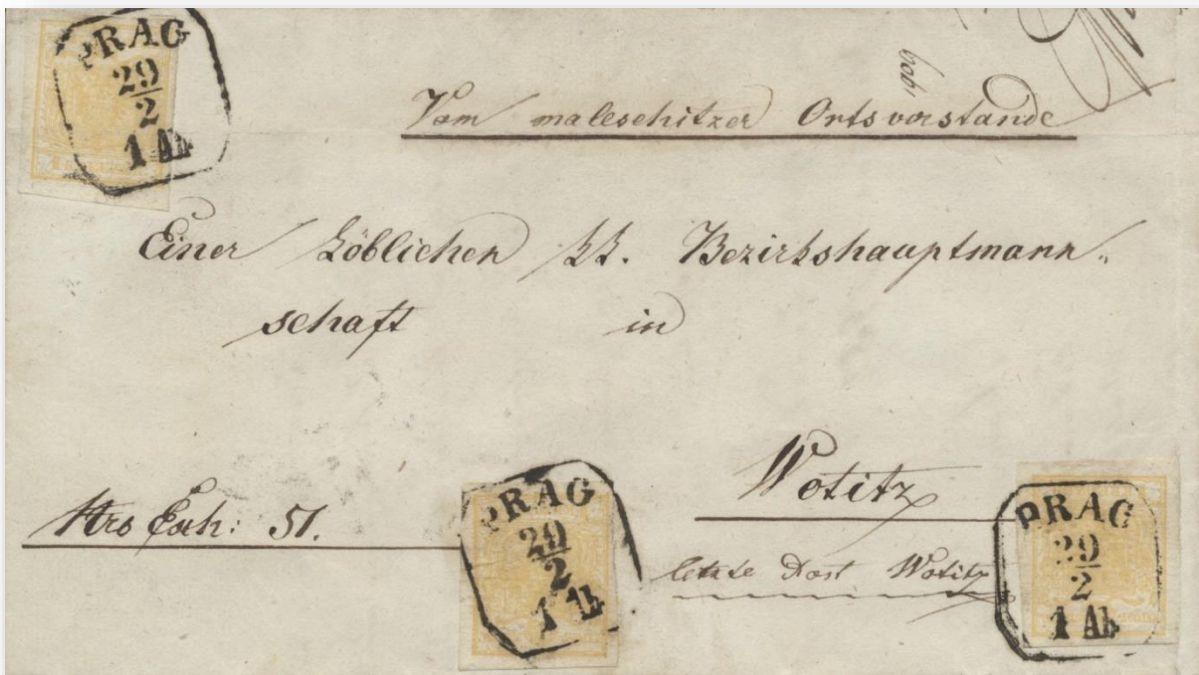 PRAG
29
2
1 Ab
Vom maleschitzer Ortsvorstande
Einer Löblichen kk. Bezirkshauptmann„
schaft in
Wotitz
Nro Exh: 51.
letzte Post Wotitz
PRAG
29
2
PRAG
29
2
1 Ab